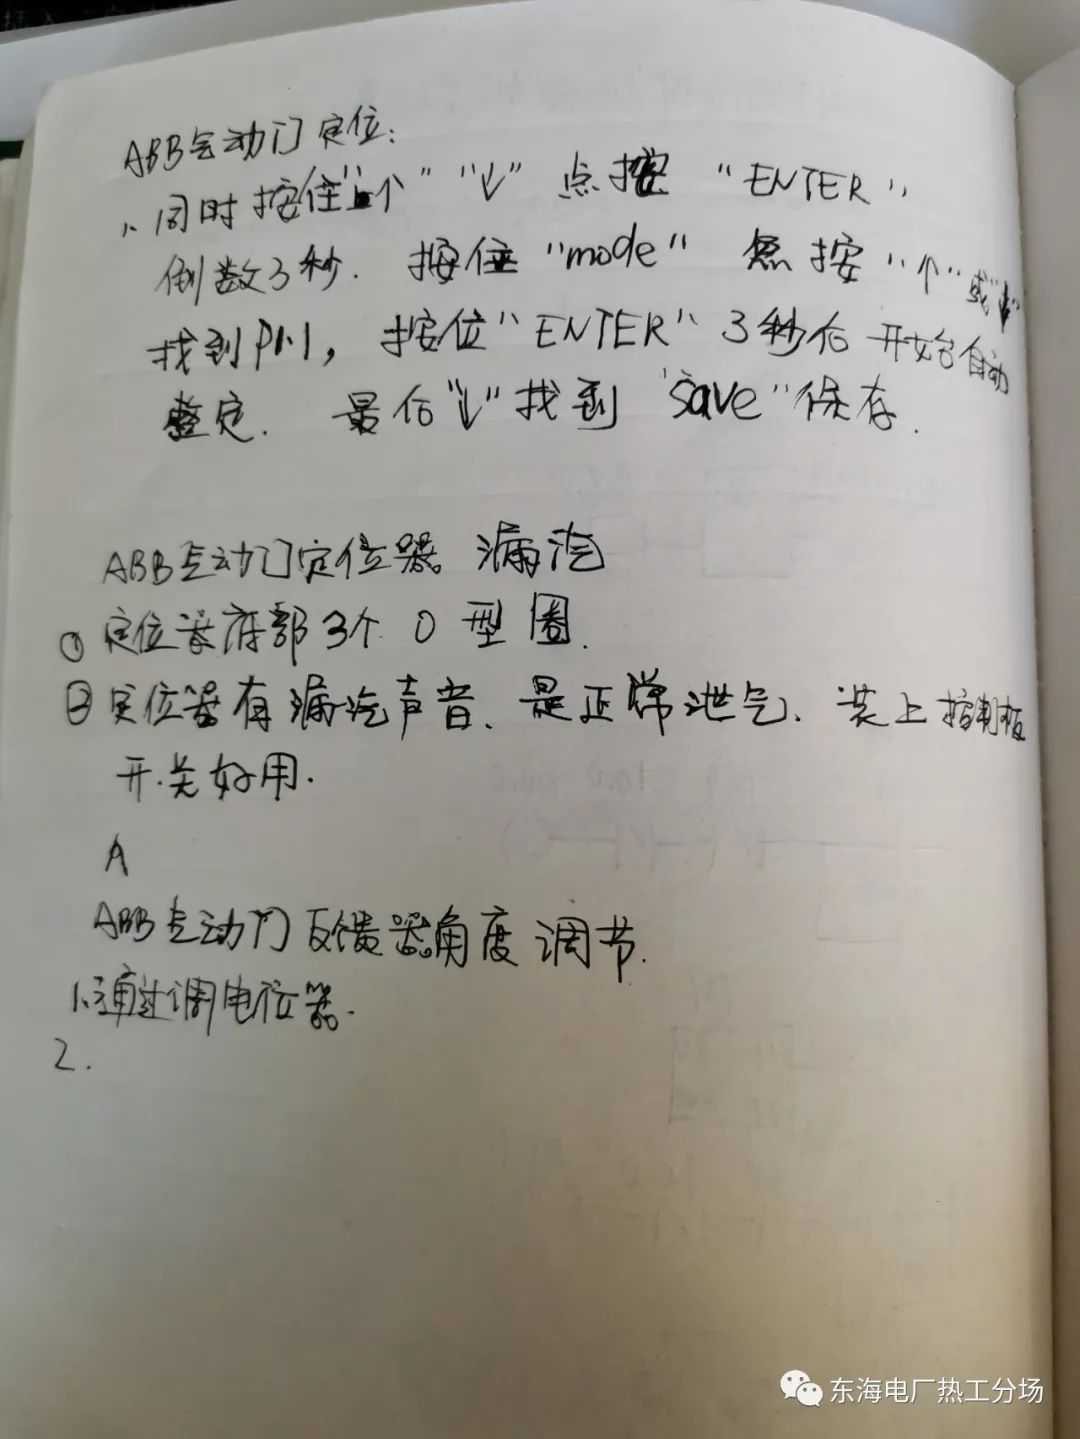 ABB气动门定位:
1、同时按住"个" "↓" 点按 "ENTER"
倒数3秒. 按住 "mode" 点按 "个"或"↓"
找到P1.1, 按位"ENTER" 3秒后 开始自动
整定. 最后"↓"找到 "save"保存.
ABB气动门定位器 漏汽
① 定位器底部3个 O 型圈.
② 定位器有漏汽声音、是正常泄气、装上控制板
开.关好用.
A
ABB气动门反馈器角度调节.
1、通过调电位器.
2.
东海电厂热工分场